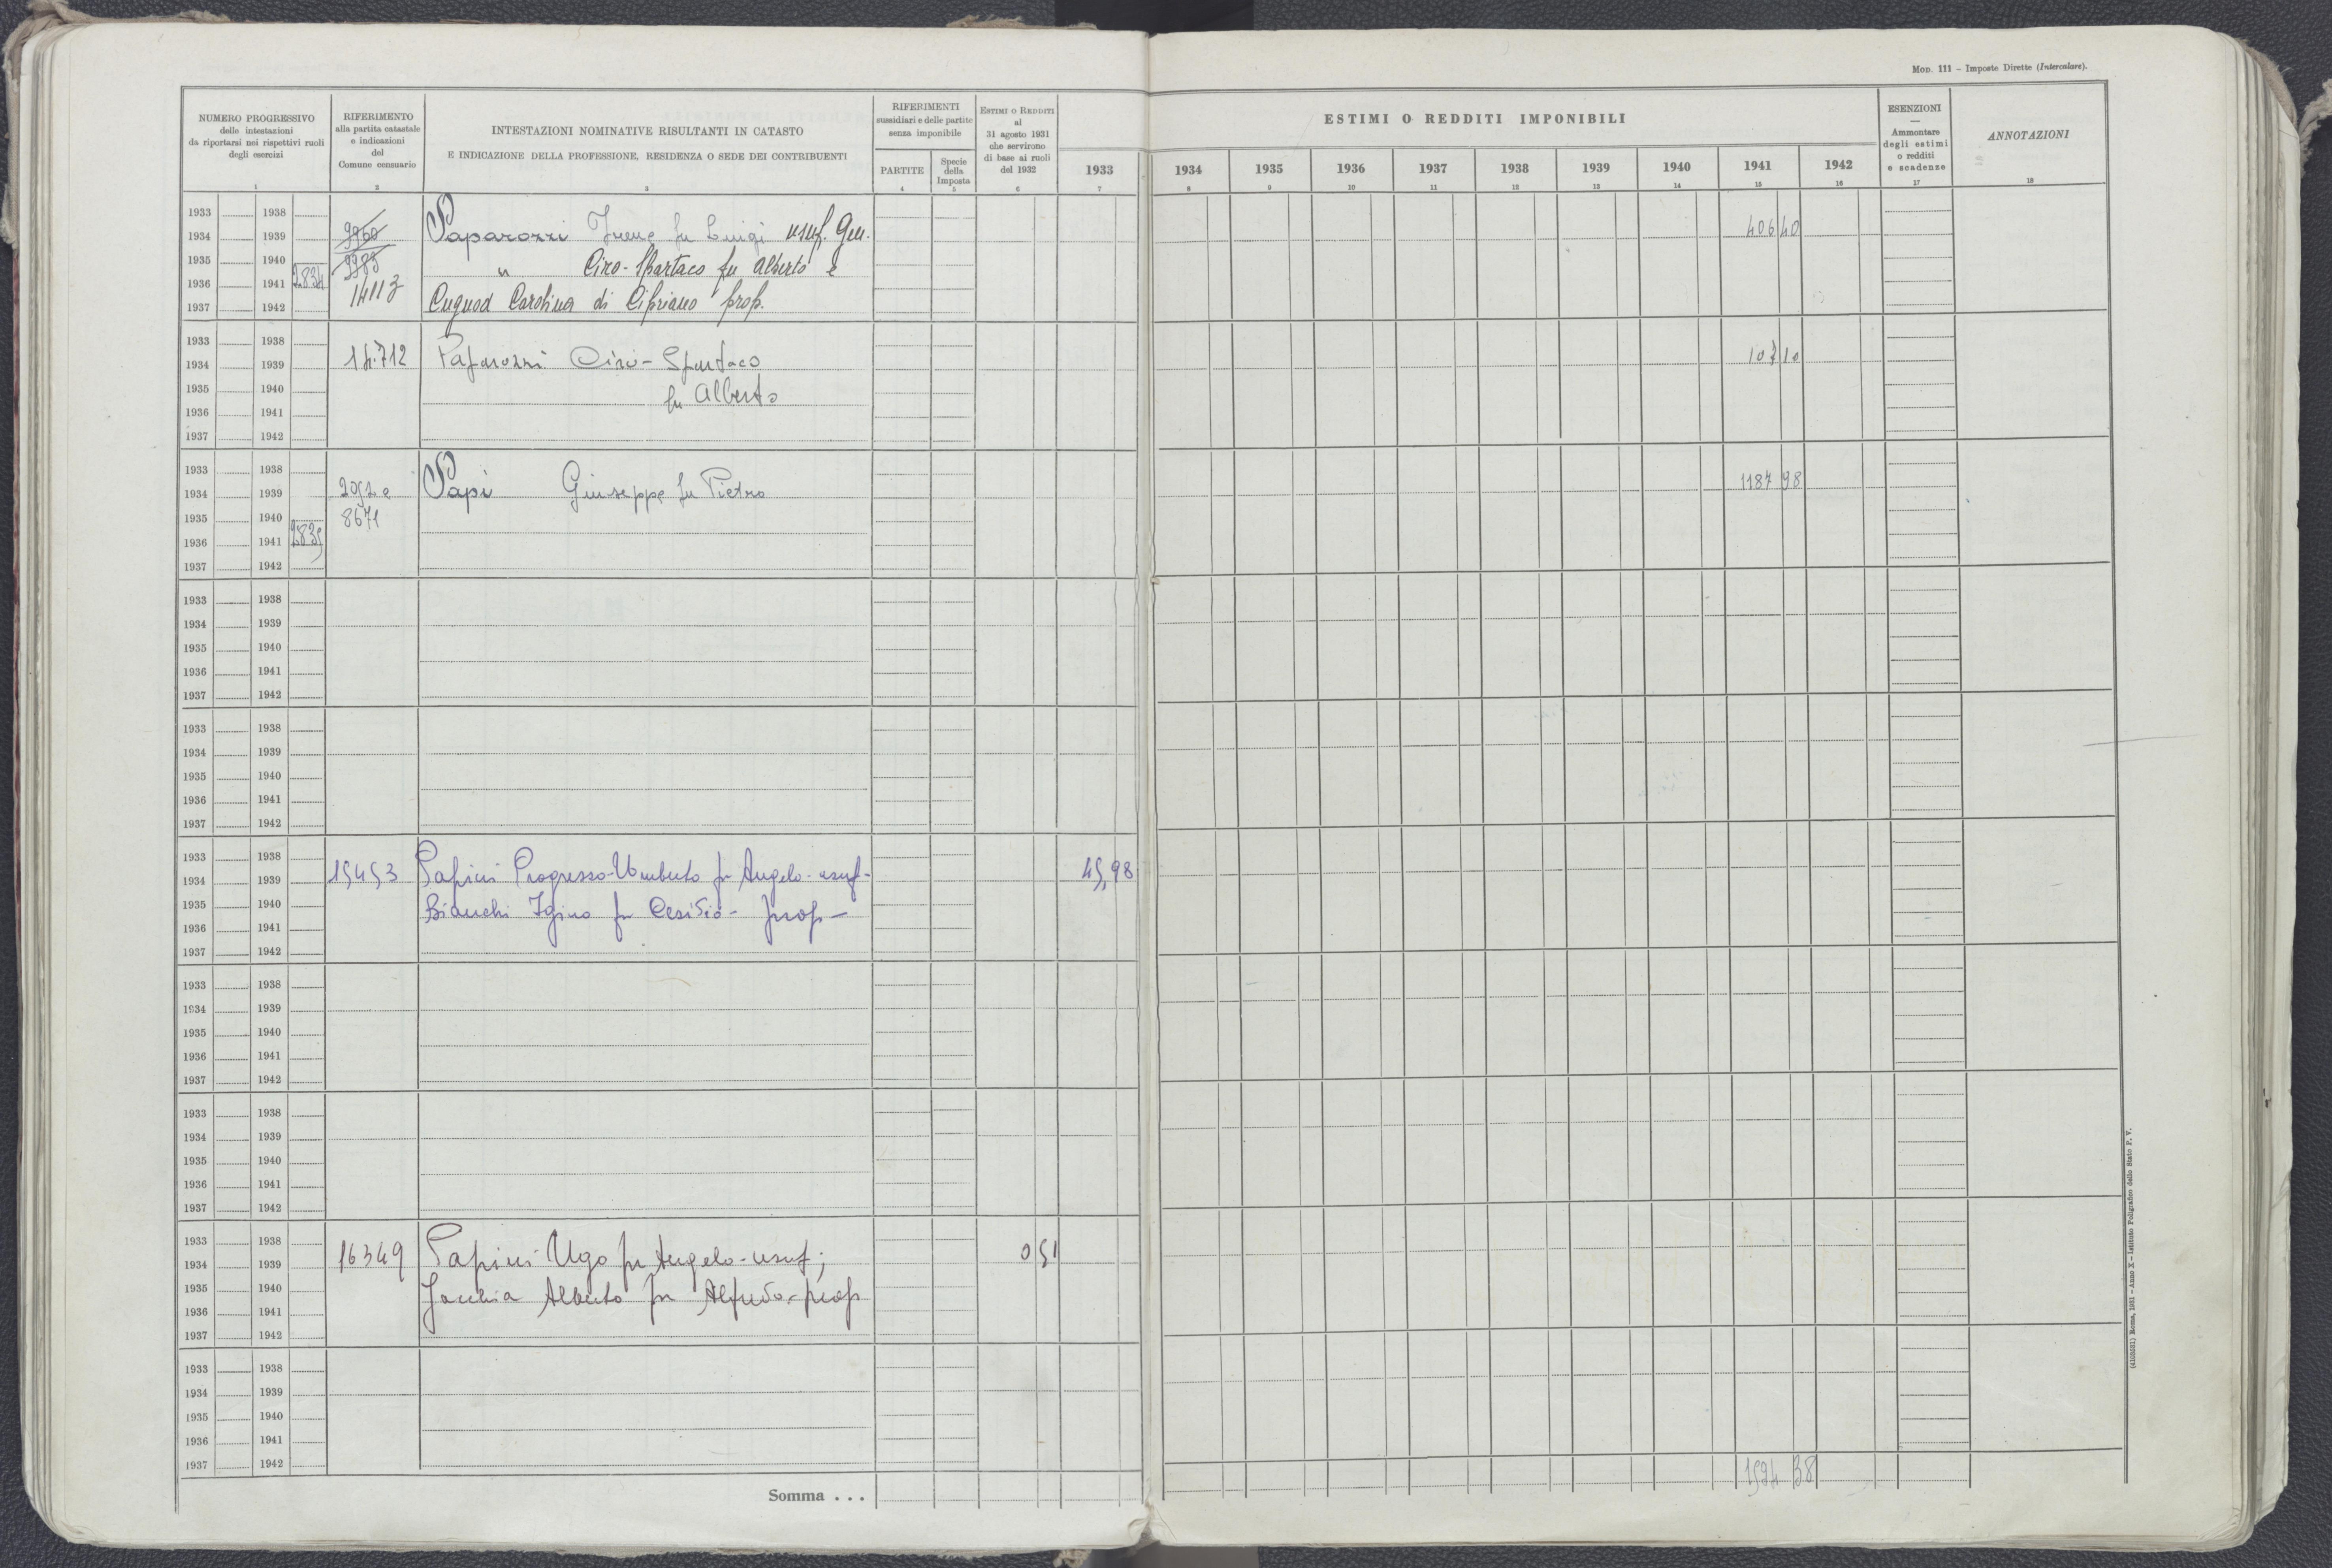 MOD. 111 – Imposte Dirette (Intercalare).
NUMERO PROGRESSIVO
delle intestazioni
da riportarsi nei rispettivi ruoli
degli esercizi
RIFERIMENTO
alla partita catastale
e indicazioni
del
Comune censuario
INTESTAZIONI NOMINATIVE RISULTANTI IN CATASTO
E INDICAZIONE DELLA PROFESSIONE, RESIDENZA O SEDE DEI CONTRIBUENTI
RIFERIMENTI
sussidiari e delle partite
senza imponibile
PARTITE
Specie
della
Imposta
ESTIMI O REDDITI
al
31 agosto 1931
che servirono
di base ai ruoli
del 1932
ESTIMI O REDDITI IMPONIBILI
1933 1934 1935 1936 1937 1938 1939 1940 1941 1942
ESENZIONI
—
Ammontare
degli estimi
o redditi
e scadenze
ANNOTAZIONI
1 2 3 4 5 6 7 8 9 10 11 12 13 14 15 16 17 18
1933 1938
1934 1939 9960 Paparozzi Irene fu Luigi usuf. Gen. 406 40
1935 1940 9983 " Ciro-Spartaco fu Alberto e
1936 1941 2834 14113
1937 1942 Cugnod Carolina di Cipriano prop.
1933 1938
1934 1939 14712 Paparozzi Ciro-Spartaco 107 10
1935 1940 fu Alberto
1936 1941
1937 1942
1933 1938
1934 1939 2092 e Papi Giuseppe fu Pietro 1187 98
1935 1940 8671
1936 1941 2835
1937 1942
1933 1938
1934 1939
1935 1940
1936 1941
1937 1942
1933 1938
1934 1939
1935 1940
1936 1941
1937 1942
1933 1938
1934 1939 15453 Papini Progresso-Umberto fu Angelo-usuf- 45,98
1935 1940 Bianchi Igino fu Cesidio- prop-
1936 1941
1937 1942
1933 1938
1934 1939
1935 1940
1936 1941
1937 1942
1933 1938
1934 1939
1935 1940
1936 1941
1937 1942
1933 1938
1934 1939 16349 Papini Ugo fu Angelo-usuf; 0 51
1935 1940 Alberto fu Alfredo-prop
1936 1941
1937 1942
1933 1938
1934 1939
1935 1940
1936 1941
1937 1942
1594 38
Somma . . .
(4103531) Roma, 1931 – Anno X – Istituto Poligrafico dello Stato P. V.